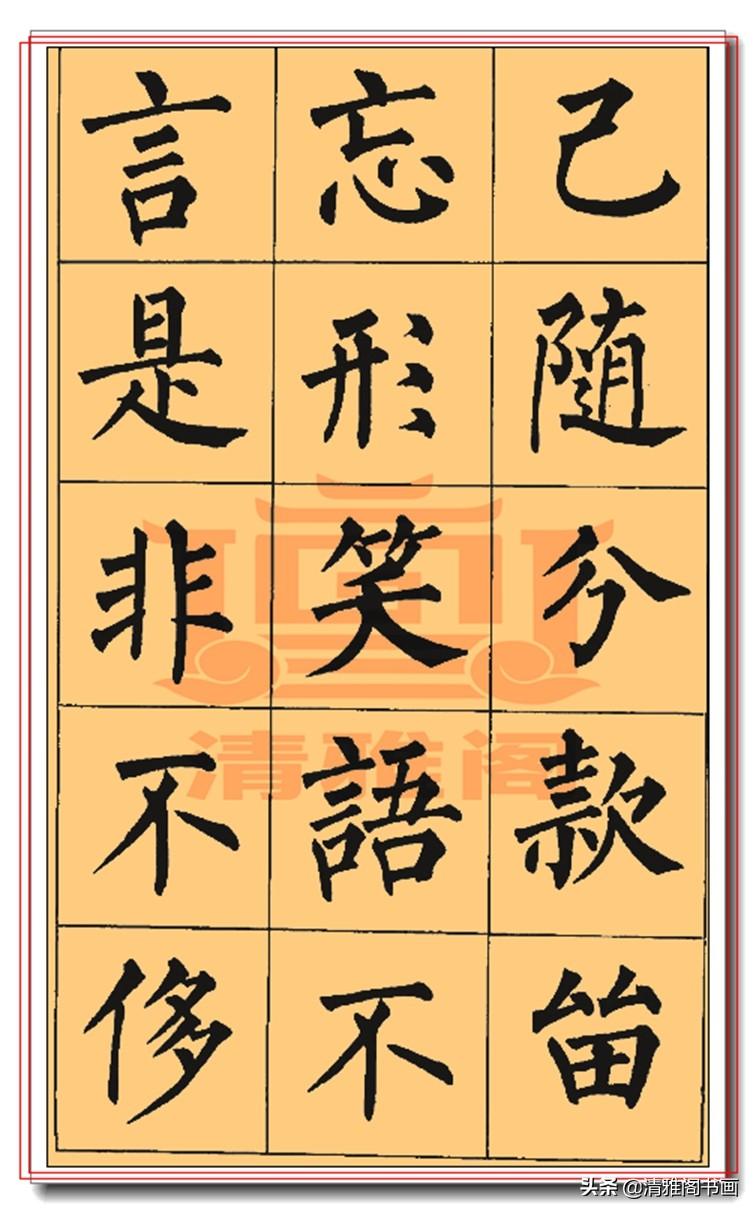 己随分款㽞
忘形笑語不
言是非不侈
清雅阁
头条 @清雅阁书画